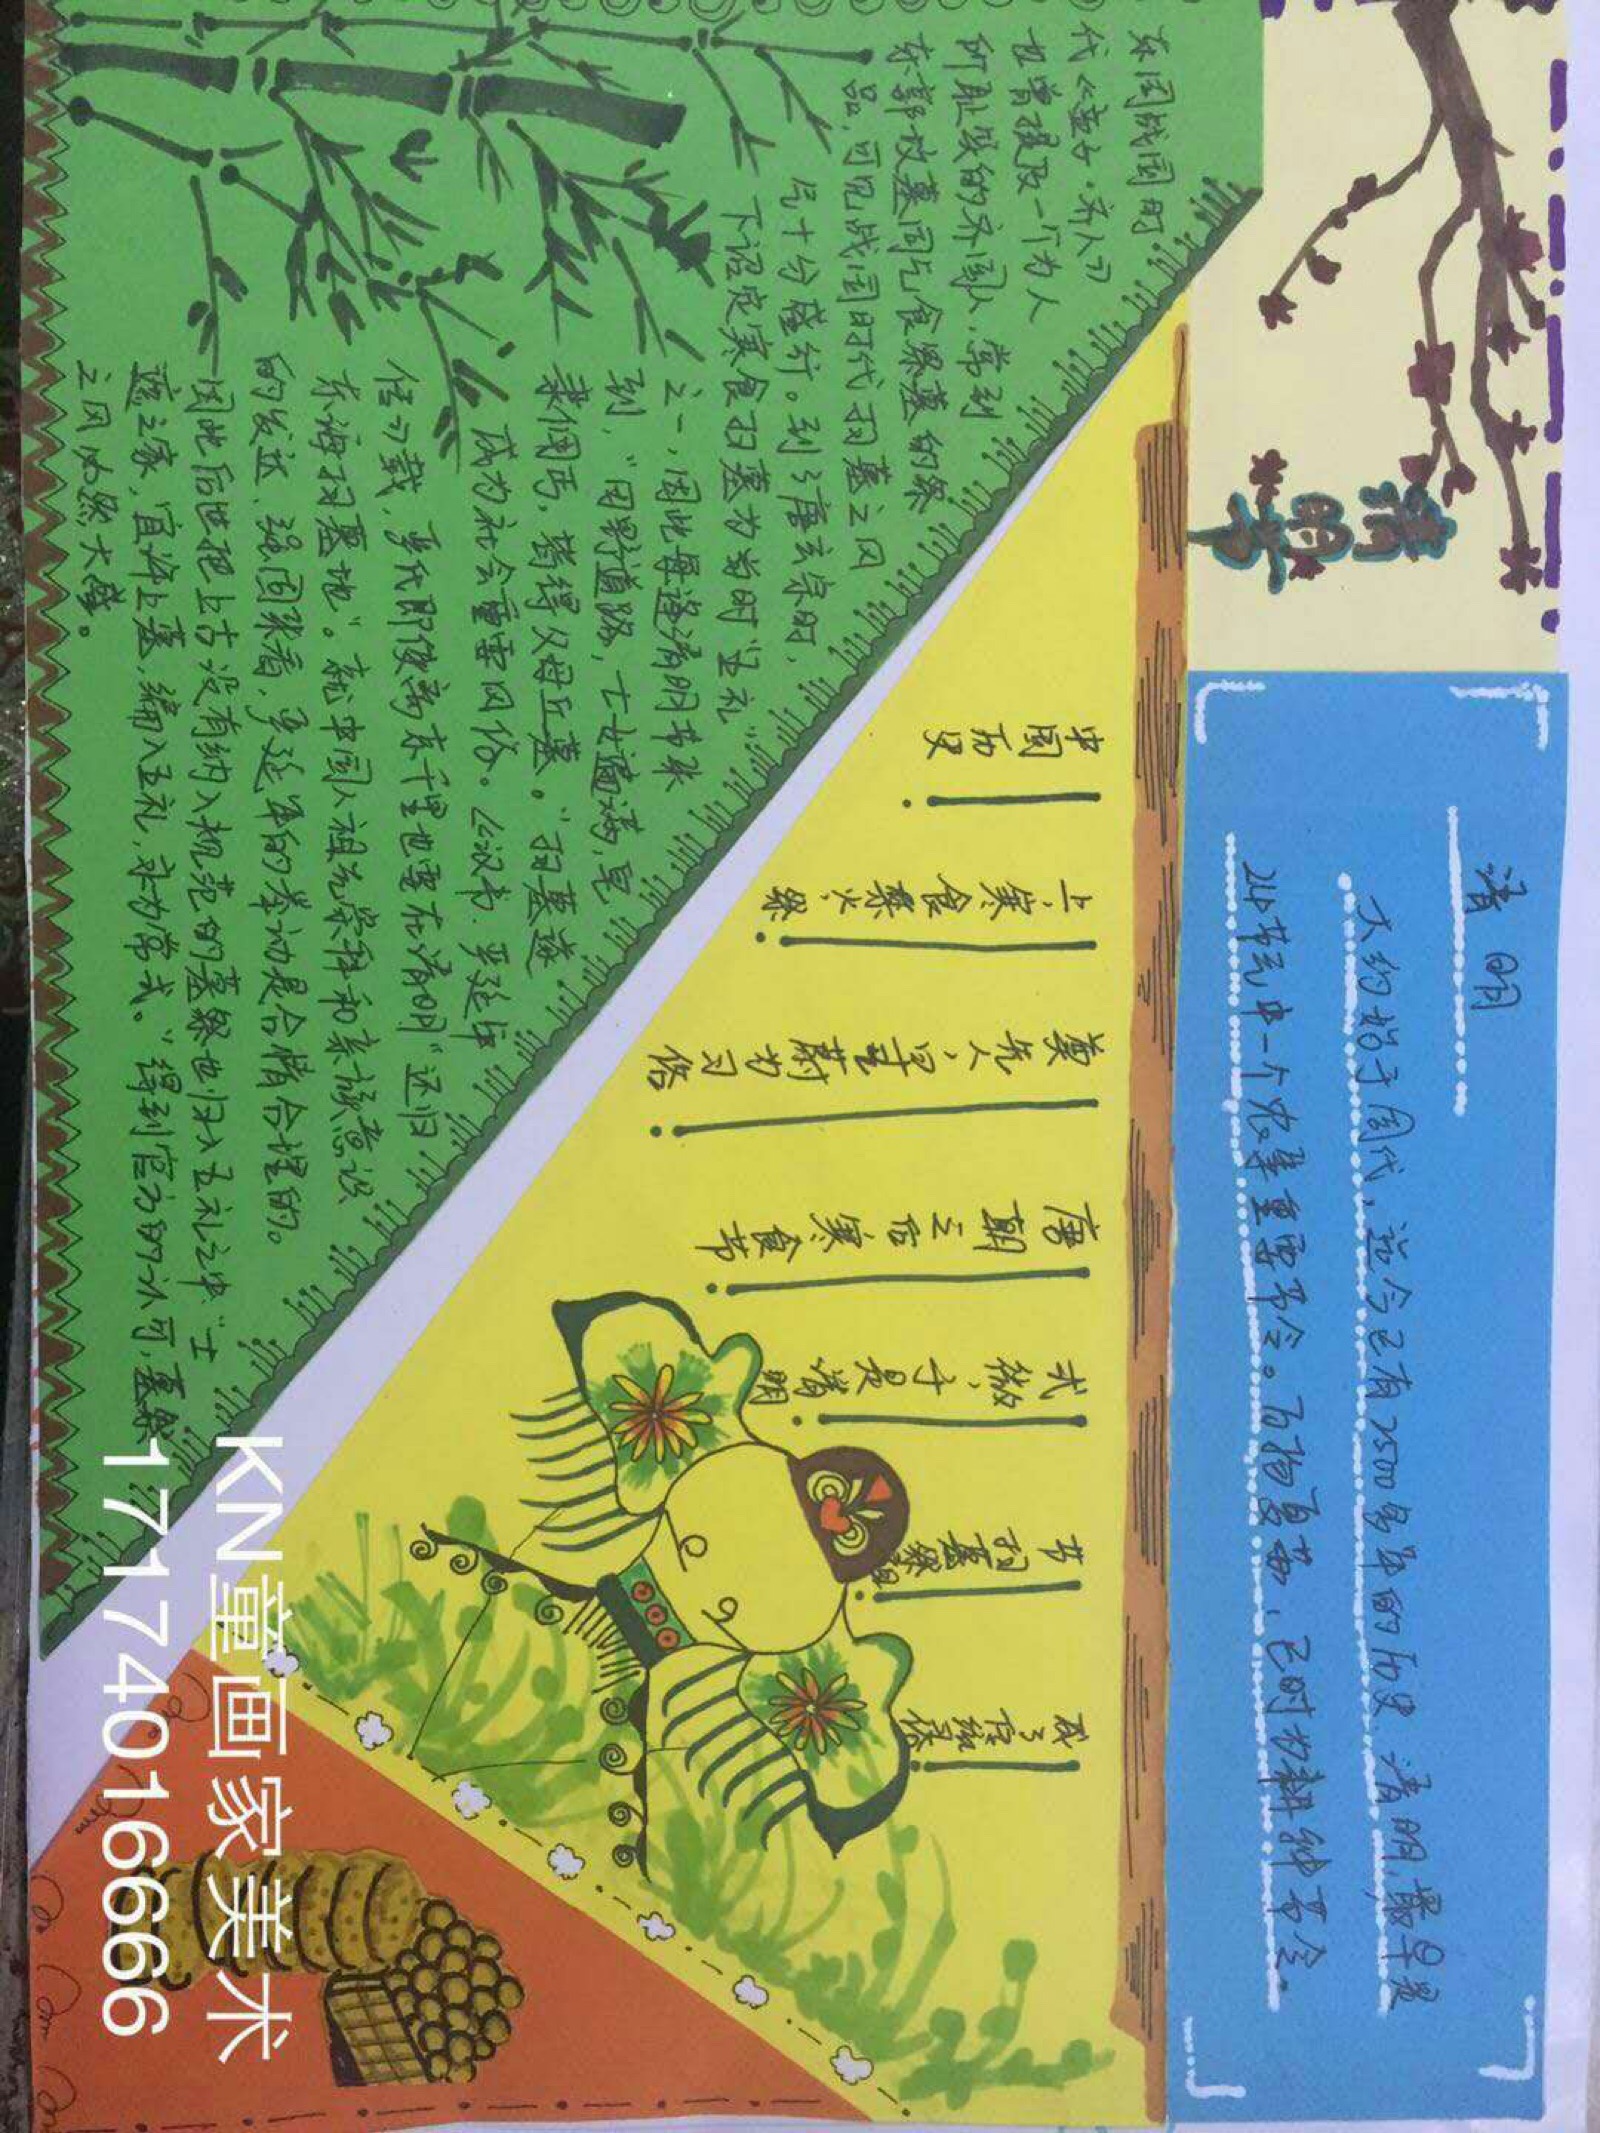 清明节
清明
大约始于周代，迄今已有2500多年的历史。清明，最早是
24节气中一个农事重要节令。
已时为耕种节令。
中国历史
上，寒食禁火，祭
奠先人，早已蔚为习俗
唐朝之后寒食节
式微，于是清明
节扫墓祭祖
成了
东周战国时
代《孟子·齐人》
也曾提及一个为人
所耻笑的齐国人，常到
东郭坟墓同乞食祭墓的祭
品，可见战国时代扫墓之风
气十分盛行。到了唐玄宗时，
下诏定寒食扫墓为当时"五礼"
之一，因此每逢清明节来
到，"田野道路，士女遍满，皂
隶佣丐，皆得父母丘墓。"扫墓遂
成为社会重要风俗。《汉书·严延年
传》载，严氏即使离京千里也要在清明"还归
东海扫墓地"。就中国人祖先崇拜和亲族意识
的发达、强固来看，严延年的举动是合情合理的。
因此后世把上古没有纳入规范的墓祭也归入五礼之中："士
庶之家，宜许上墓，编入五礼，永为常式。"得到官方的认可，墓祭
之风必然大盛。
KN童画家美术
17174016666